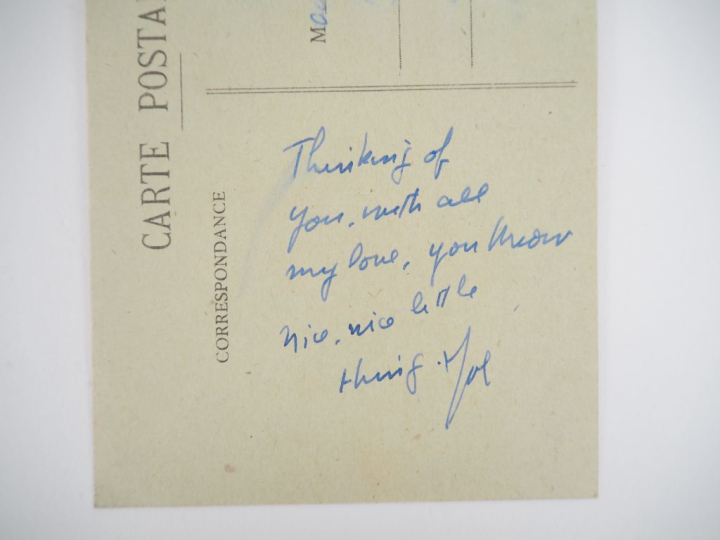 CARTE POSTA
CORRESPONDANCE
M
Thinking of
you, with all
my love, you know
nice, nice little
thing.